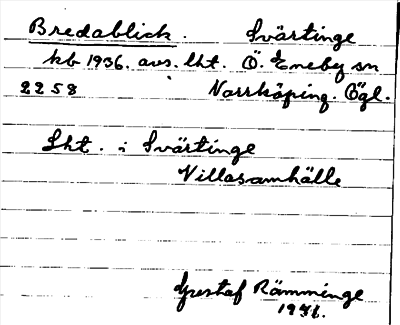 Bredablick. Svärtinge
kb 1936. avs. lht. Ö. Eneby sn
2258 Norrköping. Ögl.
Lht. i Svärtinge
Villasamhälle
Gustaf Rämminge
1976.